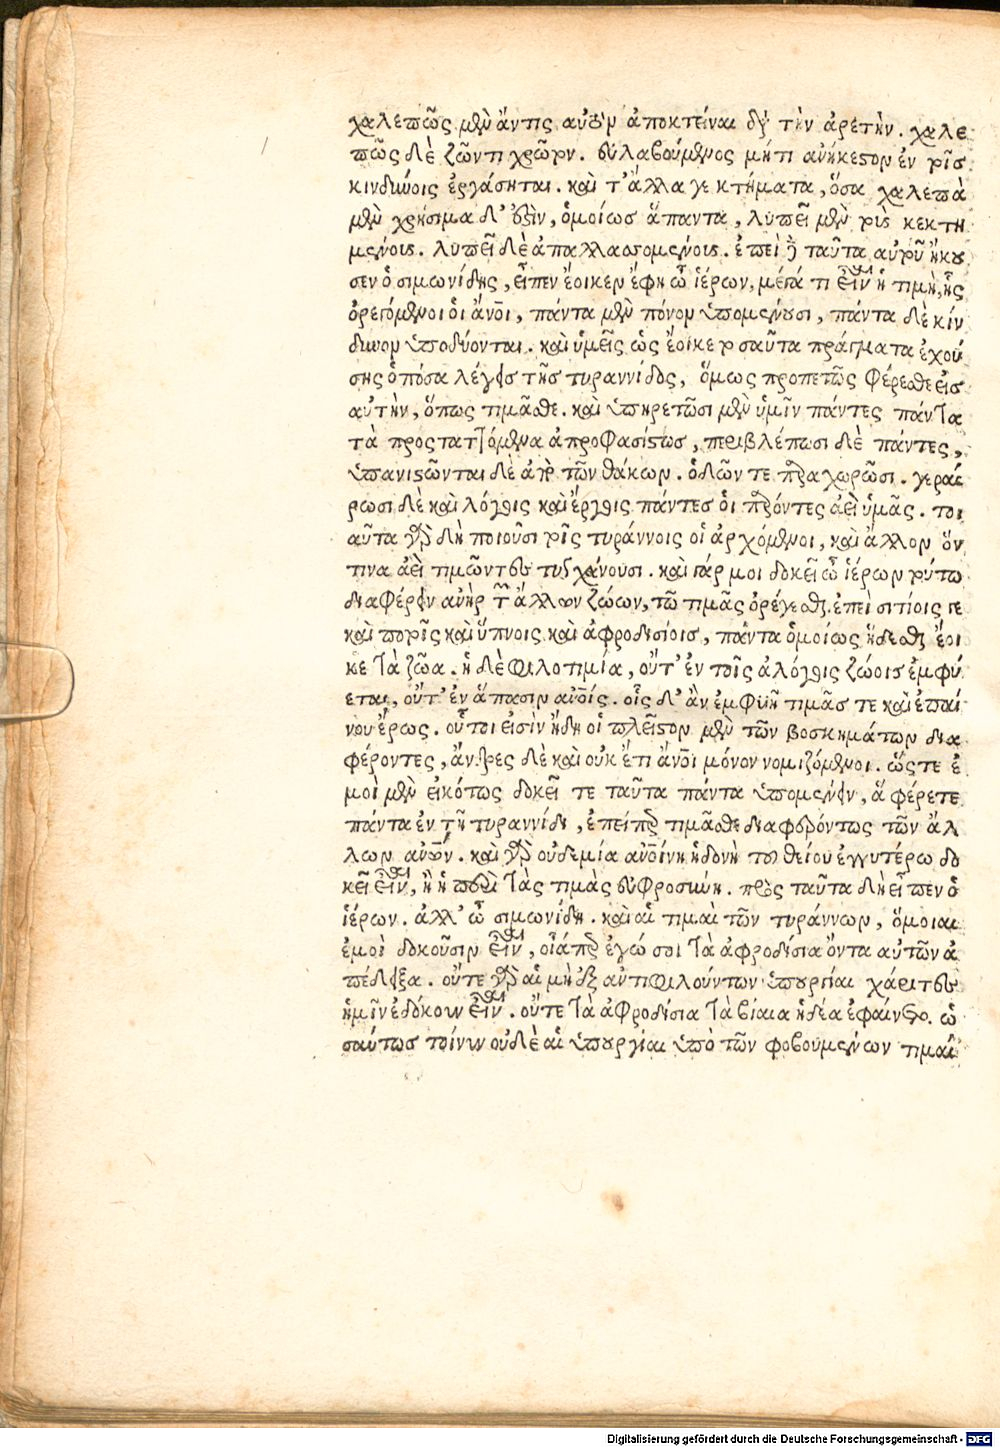 χαλεπῶς μὲν ἄν τις αὐτὸν ἀποκτείναι διὰ τὴν ἀρετὴν. χαλε
πῶς δὲ ζῶντι χρῷτο. εὐλαβούμενος μήτι ἀνήκεστον ἐν τοῖς
κινδύνοις ἐργάσηται. καὶ τ' ἄλλα γε κτήματα, ὅσα χαλεπὰ
μὲν χρήσιμα δ' ἐστὶν, ὁμοίως ἅπαντα, λυπεῖ μὲν τοὺς κεκτη
μένους. λυπεῖ δὲ ἀπαλλασσομένους. ἐπεὶ δὲ ταῦτα αὐτοῦ ἤκου
σεν ὁ σιμωνίδης, εἶπεν ἔοικεν ἔφη ὦ ἱέρων, μέγά τι εἶναι ἡ τιμὴ, ἧς
ὀρεγόμενοι οἱ ἄνοι, πάντα μὲν πόνον ὑπομένουσι, πάντα δὲ κίν
δυνον ὑποδύονται. καὶ ὑμεῖς ὡς ἔοικε τοσαῦτα πράγματα ἐχού
σης ὁπόσα λέγεις τῆς τυραννίδος, ὅμως προπετῶς φέρεσθε εἰς
αὐτὴν, ὅπως τιμᾶσθε. καὶ ὑπηρετῶσι μὲν ὑμῖν πάντες πάντα
τὰ προςταττόμενα ἀπροφασίστως, περιβλέπωσι δὲ πάντες,
ὑπανιστῶνται δὲ ἀπὸ τῶν θάκων. ὁδῶν τε παραχωρῶσι. γεραί
ρωσι δὲ καὶ λόγοις καὶ ἔργοις πάντες οἱ παρόντες ἀεὶ ὑμᾶς. τοι
αῦτα γὰρ δὴ ποιοῦσι τοῖς τυράννοις οἱ ἀρχόμενοι, καὶ ἄλλον ὅν
τινα ἀεὶ τιμῶντες τυγχάνουσι. καὶ γάρ μοι δοκεῖ ὦ ἱέρων τούτῳ
διαφέρειν ἀνὴρ τῶν ἄλλων ζώων, τῷ τιμᾶς ὀρέγεσθαι. ἐπεὶ σιτίοις γε
καὶ ποτοῖς καὶ ὕπνοις καὶ ἀφροδισίοις, πάντα ὁμοίως ἥδεσθαι ἔοι
κε τὰ ζῶα. ἡ δὲ φιλοτιμία, οὔτ' ἐν τοῖς ἀλόγοις ζώοις ἐμφύ
εται, οὔτ' ἐν ἅπασιν ἀνοῖς. οἷς δ' ἂν ἐμφυῆ τιμᾶς τε καὶ ἐπαί
νου ἔρως. οὗτοι εἰσὶν ἤδη οἱ πλεῖστον μὲν τῶν βοσκημάτων δια
φέροντες, ἄνδρες δὲ καὶ οὐκ ἔτι ἄνοι μόνον νομιζόμενοι. ὥςτε ἐ
μοὶ μὲν εἰκότως δοκεῖ τε ταῦτα πάντα ὑπομένειν, ἃ φέρετε
πάντα ἐν τῇ τυραννίδι, ἐπείπερ τιμᾶσθε διαφερόντως τῶν ἄλ
λων ἀνῶν. καὶ γὰρ οὐδεμία ἀνοίνη ἡδονὴ τοῦ θείου ἐγγυτέρω δο
κεῖ εἶναι, ἢ ἡ περὶ τὰς τιμὰς εὐφροσύνη. πρὸς ταῦτα δὴ εἶπεν ὁ
ἱέρων. ἀλλ' ὦ σιμωνίδη. καὶ αἱ τιμαὶ τῶν τυράννων, ὅμοιαι
ἐμοὶ δοκοῦσιν εἶναι, οἷάπερ ἐγώ σοι τὰ ἀφροδίσια ὄντα αὐτῶν ἀ
πέδειξα. οὔτε γὰρ αἱ μὴ ἐξ ἀντιφιλούντων ὑπουργίαι χάριτες
ἡμῖν ἐδόκουν εἶναι. οὔτε τὰ ἀφροδίσια τὰ βίαια ἡδέα ἐφαίνετο. ὡ
σαύτως τοίνυν οὐδὲ αἱ ὑπουργίαι ὑπὸ τῶν φοβουμένων τιμαί
Digitalisierung gefördert durch die Deutsche Forschungsgemeinschaft - DFG